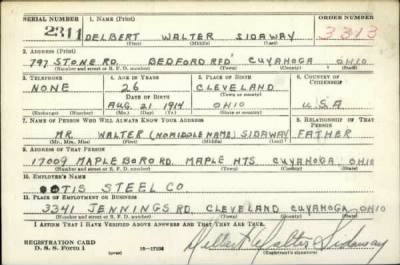 SERIAL NUMBER 1. NAME (Print) ORDER NUMBER
2311 DELBERT WALTER SIDAWAY 3313
(First) (Middle) (Last)
2. ADDRESS (Print)
797 STONE RD. BEDFORD RFD CUYAHOGA OHIO
(Number and street or R. F. D. number) (Town) (County) (State)
3. TELEPHONE 4. AGE IN YEARS 5. PLACE OF BIRTH 6. COUNTRY OF CITIZENSHIP
NONE 26 CLEVELAND
DATE OF BIRTH (Town or county)
AUG. 21 1914 OHIO U.S.A
(Mo.) (Day) (Yr.) (State or country)
7. NAME OF PERSON WHO WILL ALWAYS KNOW YOUR ADDRESS 8. RELATIONSHIP OF THAT PERSON
MR. WALTER (NO MIDDLE NAME) SIDAWAY FATHER
(Mr., Mrs., Miss) (First) (Middle) (Last)
9. ADDRESS OF THAT PERSON
17009 MAPLE BORO RD. MAPLE HTS. CUYAHOGA, OHIO
(Number and street or R. F. D. number) (Town) (County) (State)
10. EMPLOYER'S NAME
OTIS STEEL CO
11. PLACE OF EMPLOYMENT OR BUSINESS
3341 JENNINGS RD, CLEVELAND CUYAHOGA OHIO
(Number and street or R. F. D. number) (Town) (County) (State)
I AFFIRM THAT I HAVE VERIFIED ABOVE ANSWERS AND THAT THEY ARE TRUE.
REGISTRATION CARD
D. S. S. Form 1 Delbert Walter Sidaway
(Registrant's signature)